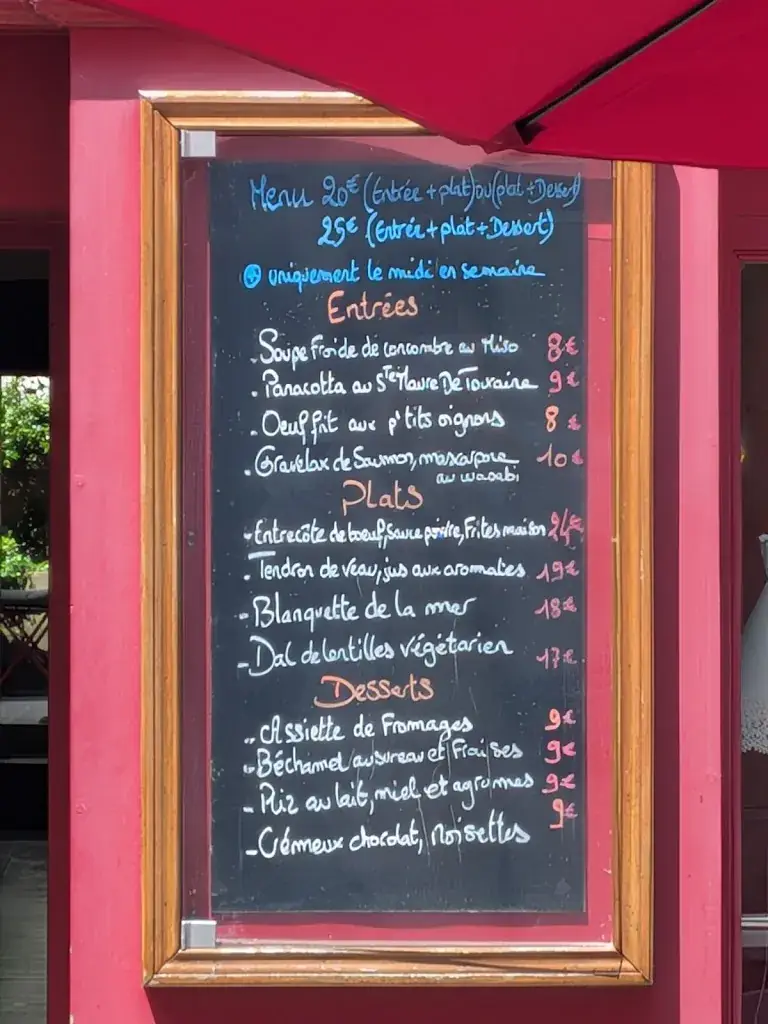 Menu 20€ (Entrée + plat) ou (plat + Dessert)
25€ (Entrée + plat + Dessert)
uniquement le midi en semaine
Entrées
- Soupe Froide de concombre au Miso 8€
- Panacotta au Ste Maure De Touraine 9€
- Oeuf frit aux p'tits oignons 8€
- Gravelax de Saumon, mascarpone au wasabi 10€
Plats
- Entrecôte de boeuf, Sauce poivre, Frites maison 24€
- Tendron de veau, jus aux aromates 19€
- Blanquette de la mer 18€
- Dal de lentilles végétarien 17€
Desserts
- Assiette de Fromages 9€
- Béchamel au sureau et Fraises 9€
- Riz au lait, miel et agrumes 9€
- Crémeux chocolat, Noisettes 9€